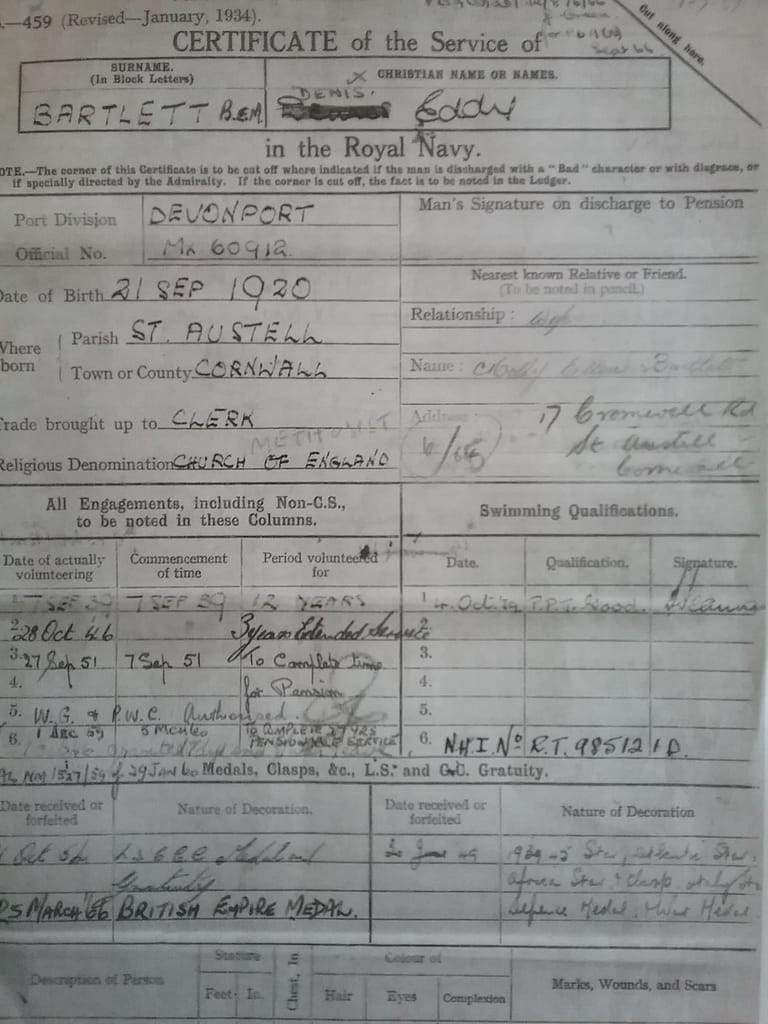 —459 (Revised—January, 1934).
Cut along here.
CERTIFICATE of the Service of
SURNAME.
(In Block Letters)
CHRISTIAN NAME OR NAMES.
BARTLETT B.E.M.
DENIS.
Eddy
in the Royal Navy.
OTE.—The corner of this Certificate is to be cut off where indicated if the man is discharged with a "Bad" character or with disgrace, or
if specially directed by the Admiralty. If the corner is cut off, the fact is to be noted in the Ledger.
Port Division DEVONPORT
Official No. MX 60912
Man's Signature on discharge to Pension
Date of Birth 21 SEP 1920
Nearest known Relative or Friend.
(To be noted in pencil.)
Where born
Parish ST. AUSTELL
Town or County CORNWALL
Relationship : Wife
Name : Bartlett
Trade brought up to CLERK
METHODIST
Religious Denomination CHURCH OF ENGLAND
Address 17 Cromwell Rd
St Austell
Cornwall
All Engagements, including Non-C.S.,
to be noted in these Columns.
Swimming Qualifications.
Date of actually volunteering
Commencement of time
Period volunteered for
Date.
Qualification.
Signature.
1. 7 SEP 39 7 SEP 39 12 YEARS
1. 4. Oct. 39 P.P.T. Good.
2. 28 Oct 46 3 years Extended Service
2.
3. 27 Sep 51 7 Sep 51 To Complete time
for Pension
3.
4.
4.
5. W.G. & P.W.C. Authorised.
5.
6. 1 DEC 59 5 Months TO COMPLETE 27 YRS
PENSIONABLE SERVICE
6. N.H.I. No R.T. 985121 D.
29 JAN 60 Medals, Clasps, &c., L.S. and G.C. Gratuity.
Date received or forfeited
Nature of Decoration.
Date received or forfeited
Nature of Decoration
Oct 54 L S & G C Medal and
Gratuity
June 49 1939-45 Star, Atlantic Star,
Africa Star & Clasp, Italy Star
Defence Medal, War Medal
25 MARCH '66 BRITISH EMPIRE MEDAL.
Description of Person
Stature
Feet
In.
Chest, In.
Colour of
Hair
Eyes
Complexion
Marks, Wounds, and Scars